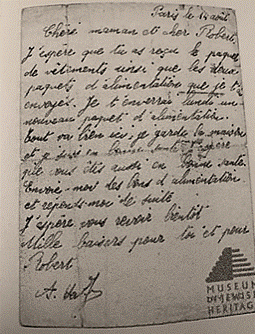 Paris le 14 août
Chère maman et cher Robert,
J'espère que tu as reçu le paquet
de vêtements ainsi que les deux
paquets d'alimentation que je t'ai
envoyés. Je t'enverrai lundi un
nouveau paquet d'alimentation.
Tout va bien ici, je garde la maison
et je suis en bonne santé. J'espère
que vous êtes aussi en bonne santé.
Envoie-moi des bons d'alimentation
et réponds-moi de suite.
J'espère vous revoir bientôt
Mille baisers pour toi et pour
Robert
MUSEUM
OF JEWISH
HERITAGE